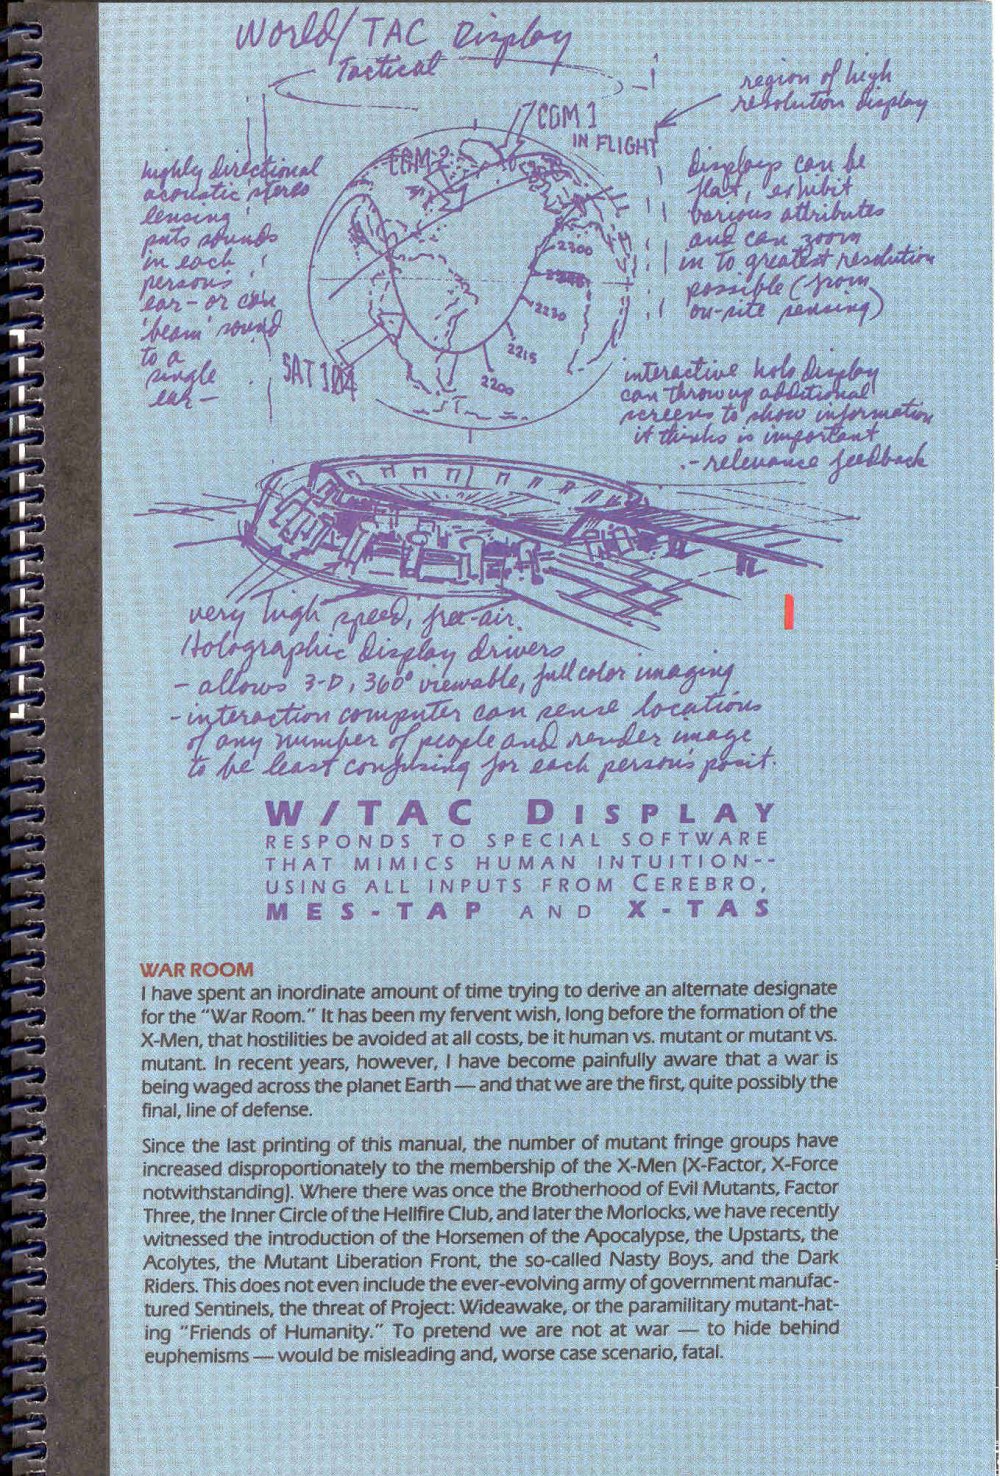 World/TAC Display
Tactical
region of high
resolution display
COM 1
IN FLIGHT
COM-2
highly directional
acoustic stereo
lensing
puts sounds
in each
person's
ear - or can
'beam' sound
to a
single
ear -
Displays can be
flat, exhibit
various attributes
and can zoom
in to greatest resolution
possible (from
on-site sensing)
2300
2230
2215
2200
SAT 104
interactive holo display
can throw up additional
screens to show information
it thinks is important
- relevance feedback
very high speed, free-air
Holographic Display drivers
- allows 3-D, 360° viewable, full color imaging
- interaction computer can sense locations
of any number of people and render image
to be least confusing for each person's posit.
W/TAC DISPLAY
RESPONDS TO SPECIAL SOFTWARE
THAT MIMICS HUMAN INTUITION--
USING ALL INPUTS FROM CEREBRO,
MES-TAP AND X-TAS
WAR ROOM
I have spent an inordinate amount of time trying to derive an alternate designate
for the "War Room." It has been my fervent wish, long before the formation of the
X-Men, that hostilities be avoided at all costs, be it human vs. mutant or mutant vs.
mutant. In recent years, however, I have become painfully aware that a war is
being waged across the planet Earth — and that we are the first, quite possibly the
final, line of defense.
Since the last printing of this manual, the number of mutant fringe groups have
increased disproportionately to the membership of the X-Men (X-Factor, X-Force
notwithstanding). Where there was once the Brotherhood of Evil Mutants, Factor
Three, the Inner Circle of the Hellfire Club, and later the Morlocks, we have recently
witnessed the introduction of the Horsemen of the Apocalypse, the Upstarts, the
Acolytes, the Mutant Liberation Front, the so-called Nasty Boys, and the Dark
Riders. This does not even include the ever-evolving army of government manufac-
tured Sentinels, the threat of Project: Wideawake, or the paramilitary mutant-hat-
ing "Friends of Humanity." To pretend we are not at war — to hide behind
euphemisms — would be misleading and, worse case scenario, fatal.